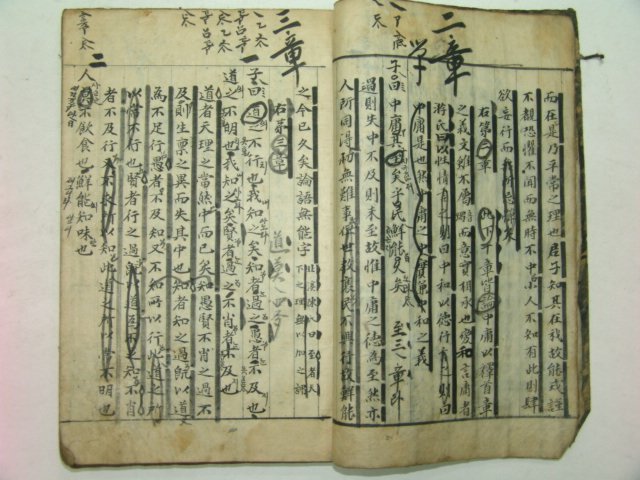 二章
而在是乃平常之理也君子知其在我故能戒謹
不覩恐懼不聞而無時不中小人不知有此則肆
欲妄行而無所忌憚矣
右第二章 此下十章皆論中庸以釋首章
之義文雖不屬而意實相承也變和言庸者
游氏曰以性情言之則曰中和以德行言之則曰
中庸是也然中庸之中實兼中和之義
子曰中庸其至矣乎民鮮能久矣
過則失中不及則未至故惟中庸之德爲至然亦
人所同得初無難事但世教衰民不興行故鮮能
三章
之今已久矣論語無能字
右第三章
子曰道之不行也我知之矣知者過之愚者不及也
道之不明也我知之矣賢者過之不肖者不及也
道者天理之當然中而已矣知愚賢不肖之過不
及則生稟之異而失其中也知者知之過旣以道
爲不足行愚者不及知又不知所以行此道之所
以常不行也賢者行之過旣以道爲不足知不肖
者不及行又不求所以知此道之所以常不明也
人莫不飲食也鮮能知味也